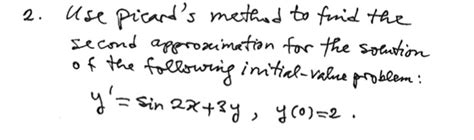 2. Use Picard's method to find the
second approximation for the solution
of the following initial-value problem:
y' = sin 2x + 3y , y(0) = 2 .